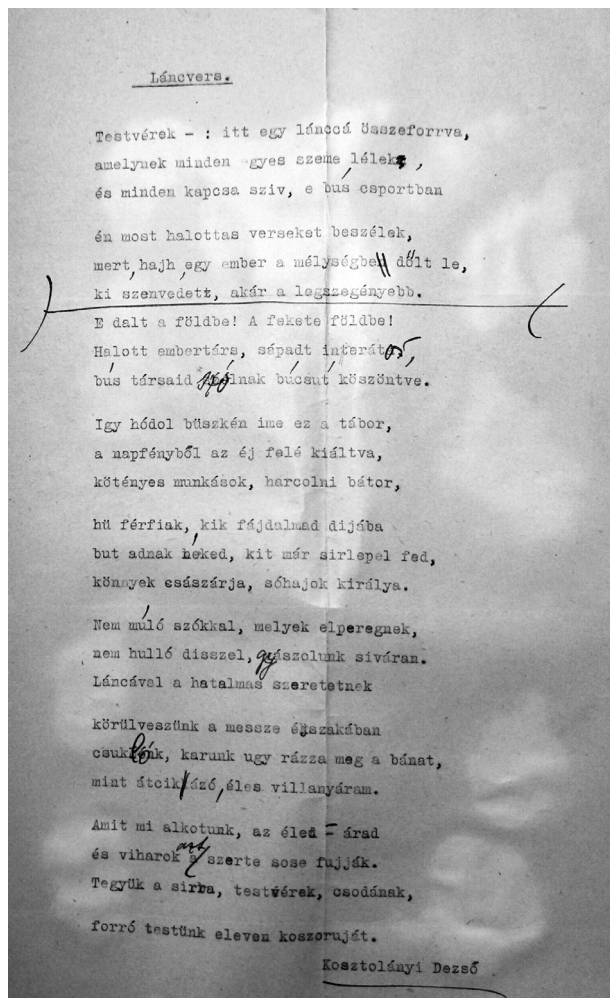 Láncvers.
Testvérek - : itt egy lánccá összeforrva,
amelynek minden gyes szeme lélek,
és minden kapcsa sziv, e bús csportban
én most halottas verseket beszélek,
mert, hajh, egy ember a mélységbe dőlt le,
ki szenvedett, akár a legszegényebb.
E dalt a földbe! A fekete földbe!
Halott embertárs, sápadt interátor,
bús társaid szólnak búcsút köszöntve.
Igy hódol büszkén ime ez a tábor,
a napfényből az éj felé kiáltva,
kötényes munkások, harcolni bátor,
hü férfiak, kik fájdalmad dijába
but adnak neked, kit már sirlepel fed,
könnyek császárja, sóhajok királya.
Nem múló szókkal, melyek elperegnek,
nem hulló disszel, gyászolunk siváran.
Láncával a hatalmas szeretetnek
körülveszünk a messze éjszakában
csuklónk, karunk ugy rázza meg a bánat,
mint átcikázó, éles villanyáram.
Amit mi alkotunk, az éled - árad
és viharok azt szerte sose fujják.
Tegyük a sirba, testvérek, csodának,
forró testünk eleven koszoruját.
Kosztolányi Dezső